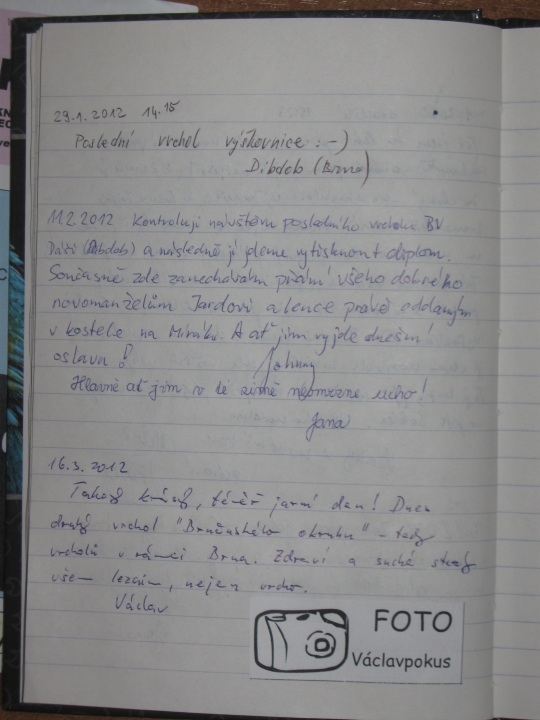 29.1.2012 14.15
Poslední vrchol výškovnice :-)
Dibdob (Brno)
11.2.2012 Kontroluji návštěvu posledního vrcholu BV
(Dibdob) a následně jí jdeme vytisknout diplom.
Současně zde zanechávám přání všeho dobrého
novomanželům Jardovi a Lence právě oddaným
v kostele na Míráku. A ať jim vyjde dnešní
oslava!
Johnny
Hlavně ať jim v té zimě neomrzne ucho!
Jana
16.3.2012
Takový krásný, téměř jarní den! Dnes
druhý vrchol "Brněnského okruhu" - tedy
vrcholů v rámci Brna. Zdraví a suché
všem lezcům, nejen
Václav
FOTO
Václavpokus